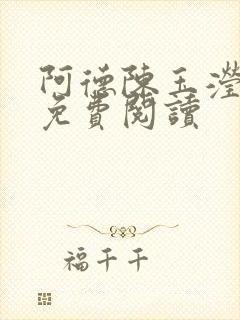 阿德陳玉瀅
免費閱讀
福千千